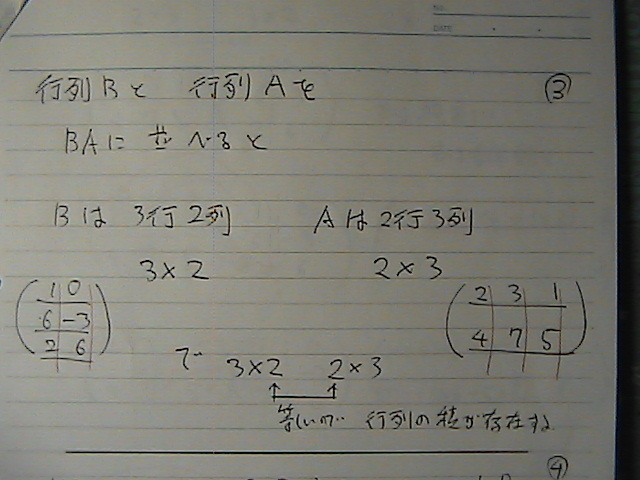 NO.
DATE
行列Bと 行列Aを ③
BAに並べると
Bは 3行2列 Aは2行3列
3×2 2×3
1 0
6 -3
2 6
2 3 1
4 7 5
で 3×2 2×3
等しいので 行列の積が存在する
④